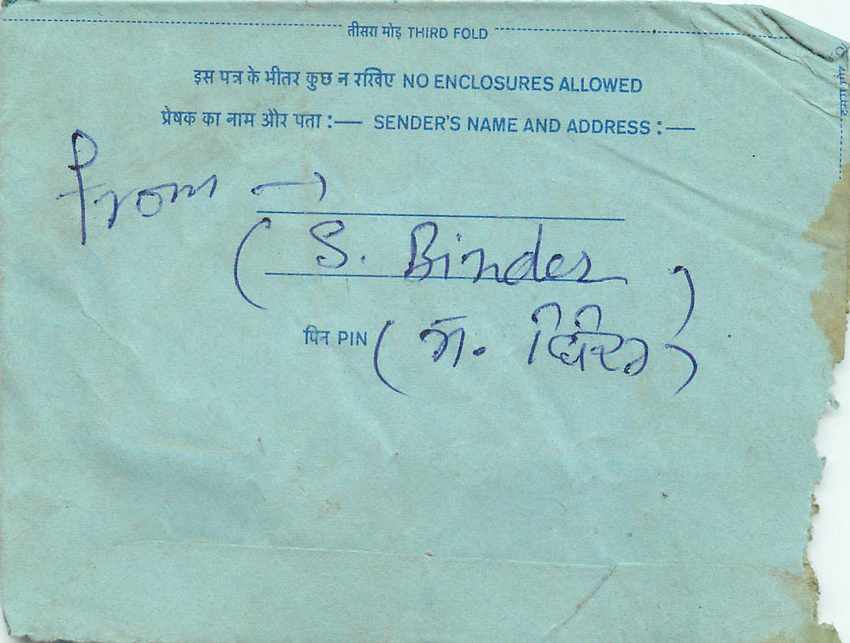 तीसरा मोड़ THIRD FOLD
इस पत्र के भीतर कुछ न रखिए NO ENCLOSURES ALLOWED
प्रेषक का नाम और पता :— SENDER'S NAME AND ADDRESS :—
From →
( S. Binder )
पिन PIN